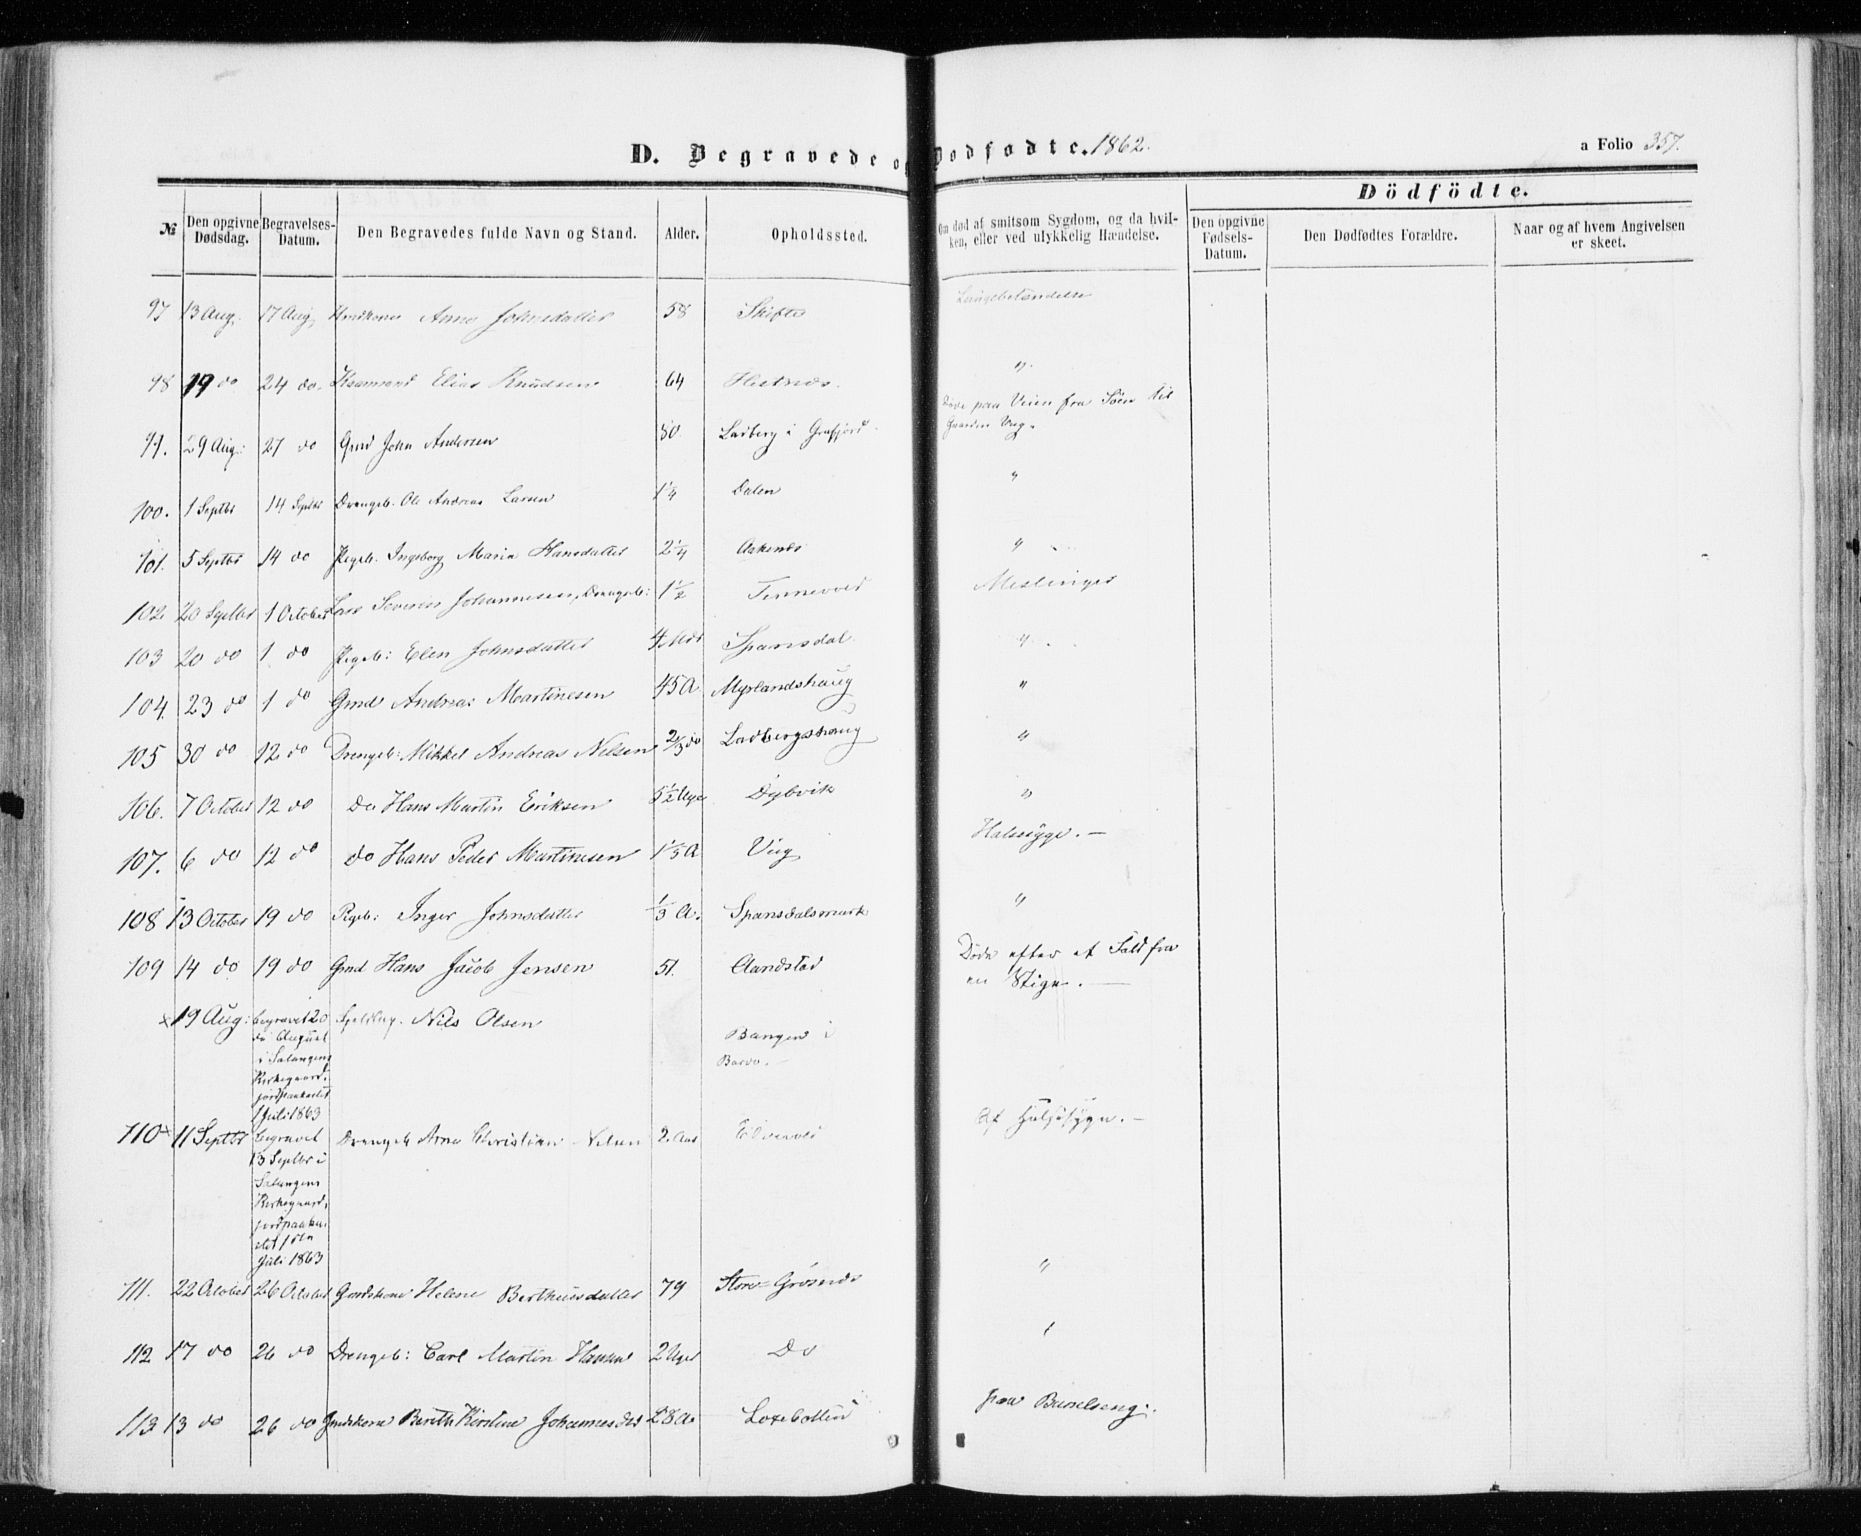 D. Begravede og Dødfødte. 1862.
a Folio 357.
Dödfödte.
№ Den opgivne Dødsdag. Begravelses-Datum. Den Begravedes fulde Navn og Stand. Alder. Opholdssted. Om død af smitsom Sygdom, og da hvilken, eller ved ulykkelig Hændelse. Den opgivne Fødsels-Datum. Den Dødfødtes Forældre. Naar og af hvem Angivelsen er skeet.
97 13 Aug. 17 Aug Anne Johnsdatter 58 Lungebetændelse
98 19 do 24 do. Elias Knudsen 64 "
Døde paa Veien fra Søen til
99. 29 Aug: 27 do Gmd John Andersen 50 Ladberg i Grafjord. Gaarden Vug.
100. 1 Septbr 14 Septbr Drengeb. Ole Andreas Larsen 1¼ Dalen "
101. 5 Septbr 14 do Pigeb. Ingeborg Maria Hansdatter 2¼ "
102 20 Septbr 1 October Lars Severin Johannesen, Drengeb: 1½ Tennevold Meslinger
103 20 do 1 do Pigeb: Elen Johnsdatter 4 Mdr Spansdal. "
104. 23 do 1 do Gmd Andreas Martinesen 45 A Myrlandshaug "
105 30 do 12 do Drengeb: Mikkel Andreas Nilsen 2/3 do Ladbergshaug "
106. 7 October 12 do Do Hans Martin Eriksen 5½ Uger Dybvik "
107. 6 do 12 do do Hans Peder Martinesen 1⅓ A Vug Halssyge. —
108 13 October 19 do Pigeb: Inger Johnsdatter ⅓ A. Spansdalsmark "
109 14 do 19 do Gmd Hans Jacob Jensen 51. Aandstad Døde efter et Fald fra
en Stige. —
× 19 Aug: begravet 20 Nils Olsen
de August Bangen i
i Salangens Bardo. —
Kirkegaard,
jordpaakastet
1 Juli 1863
110 × 11 Septbr begravet Drengeb Arne Christian Nilsen 2. Aar Elvevold Af Halssyge. —
13 Septbr i
Salangens
Kirkegaard,
jordpaaka-
stet 1ste
Juli 1863
111. 22 October 26 October Gaardkone Helene Bertheusdatter 79 Store-Grøsnæs "
112 17 do 26 do Drengeb: Carl Martin Hansen 2 Uger Do "
113 13 do 26 do Gmdskone Berith Kirstine Johannesdtr 28 A. Loxebotten paa Barselseng.